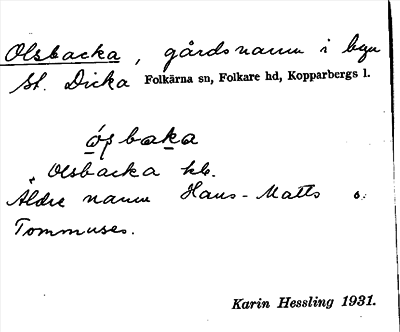 Olsbacka, gårdsnamn i byn
St. Dicka Folkärna sn, Folkare hd, Kopparbergs l.
ólsbaka
Olsbacka kb.
Äldre namn Hans-Matts o.
Tommuses.
Karin Hessling 1931.